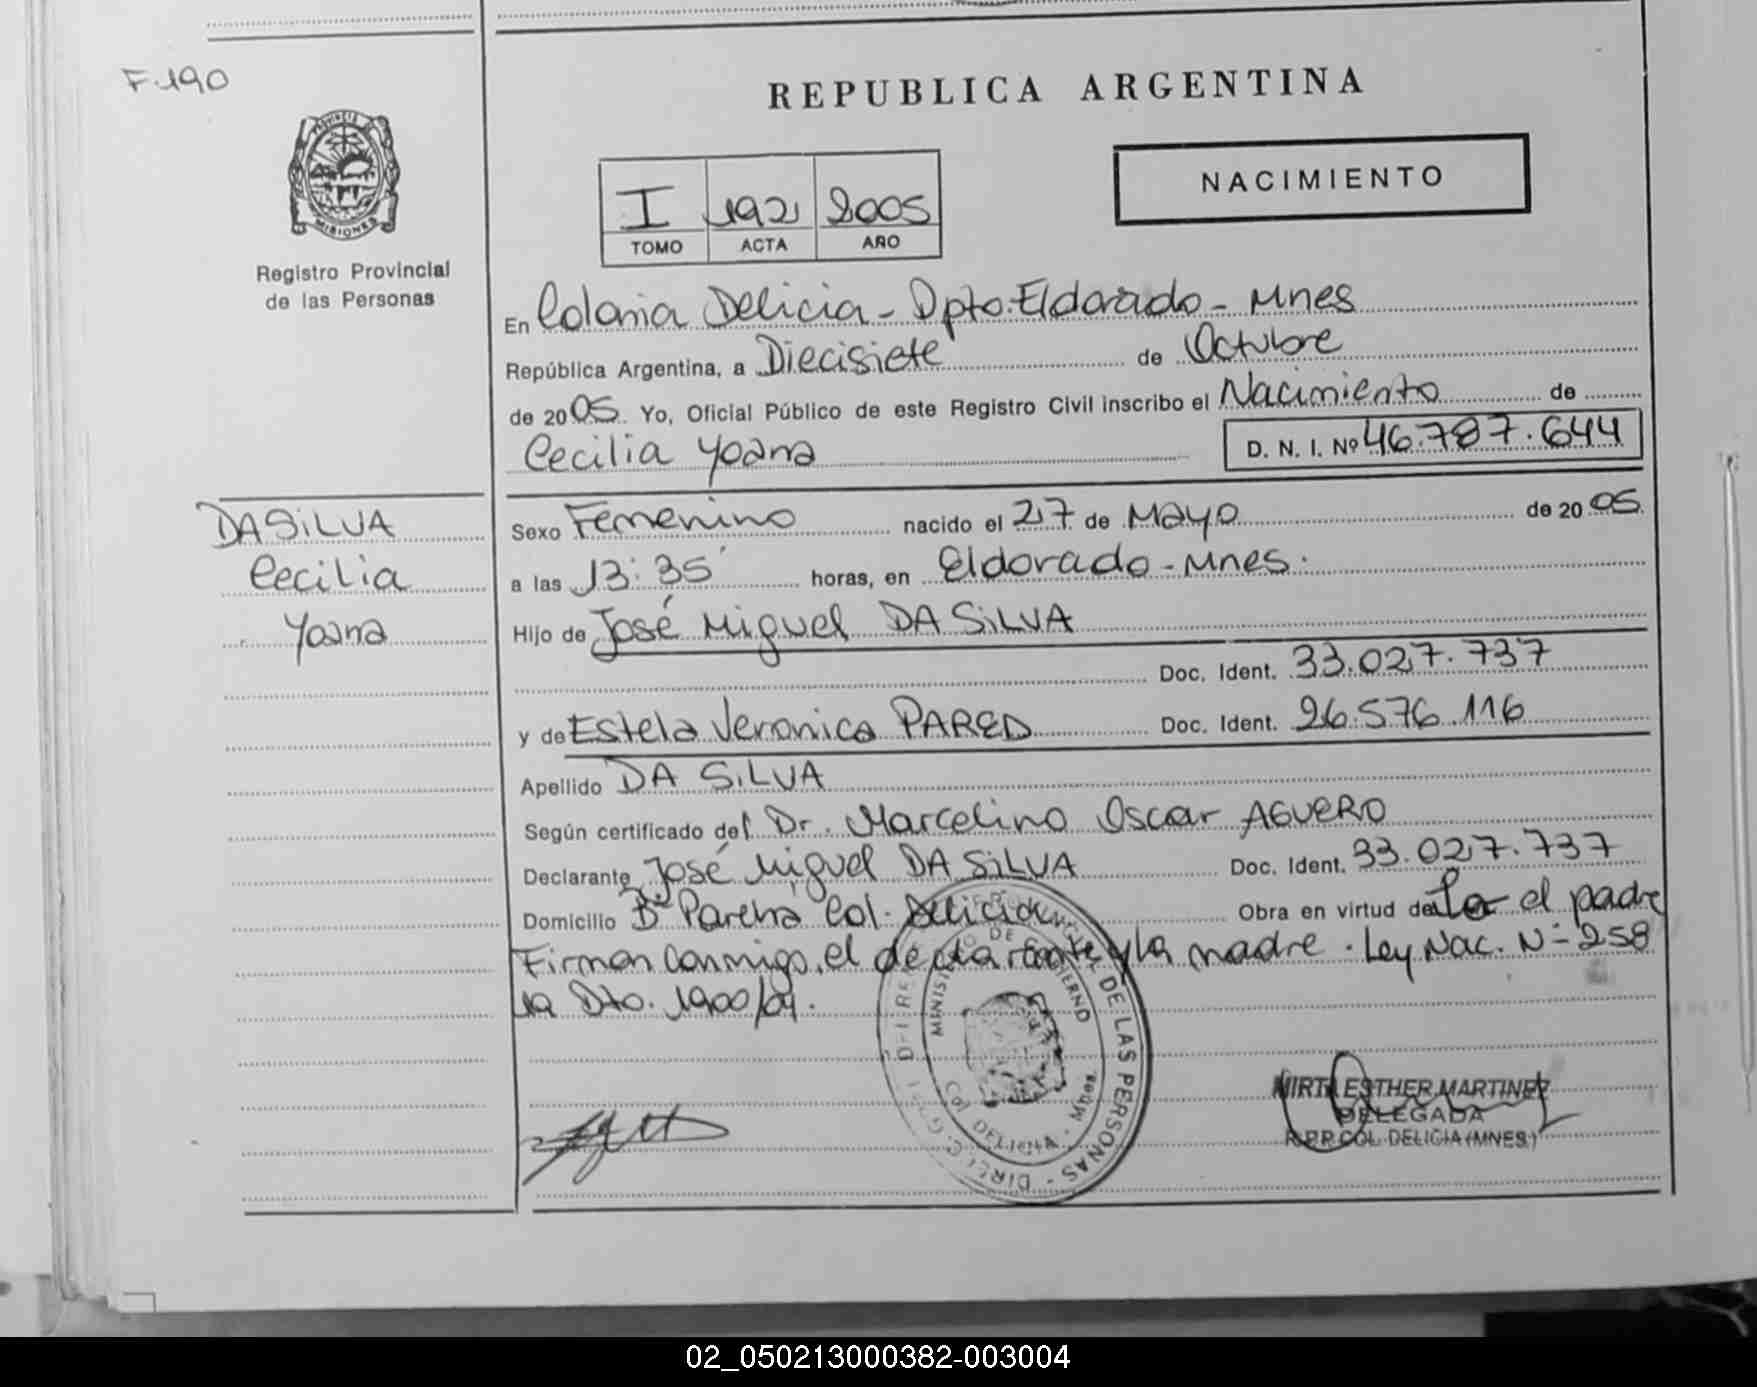 F. 190
PROVINCIA DE
MISIONES
Registro Provincial
de las Personas
REPUBLICA ARGENTINA
NACIMIENTO
I 192 2005
TOMO ACTA AÑO
En Colonia Delicia - Dpto. Eldorado - Mnes
República Argentina, a Diecisiete de Octubre
de 2005. Yo, Oficial Público de este Registro Civil inscribo el Nacimiento de
Cecilia Yoana D. N. I. Nº 46.787.644
DA SILVA
Cecilia
Yoana
Sexo Femenino nacido el 27 de Mayo de 2005.
a las 13:35' horas, en Eldorado - Mnes.
Hijo de José Miguel DA SILVA
Doc. Ident. 33.027.737
y de Estela Veronica PARED Doc. Ident. 26.576.116
Apellido DA SILVA
Según certificado del Dr. Marcelino Oscar AGUERO
Declarante José Miguel DA SILVA Doc. Ident. 33.027.737
Domicilio Bº Col. Delicia Obra en virtud de el padre
Firman conmigo, el declarante y la madre. Ley Nac. Nº 258
Dto. 1900/04.
DE LAS PERSONAS
MINISTERIO DE GOBIERNO
Col. DELICIA - Mnes.
MIRTA ESTHER MARTINEZ
DELEGADA
R.P.P. COL. DELICIA (MNES)
02_050213000382-003004